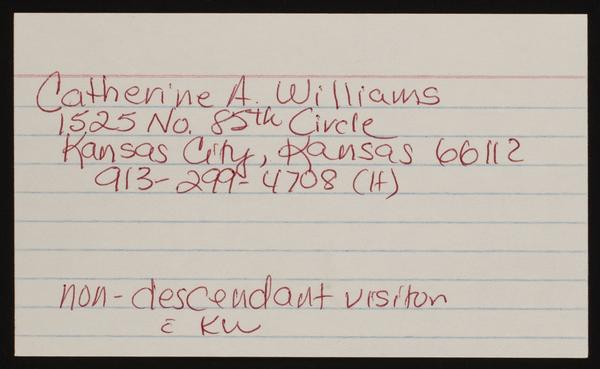 Catherine A. Williams
1525 No. 85th Circle
Kansas City, Kansas 66112
913-299-4708 (H)
non-descendant visitor
c̄ KW